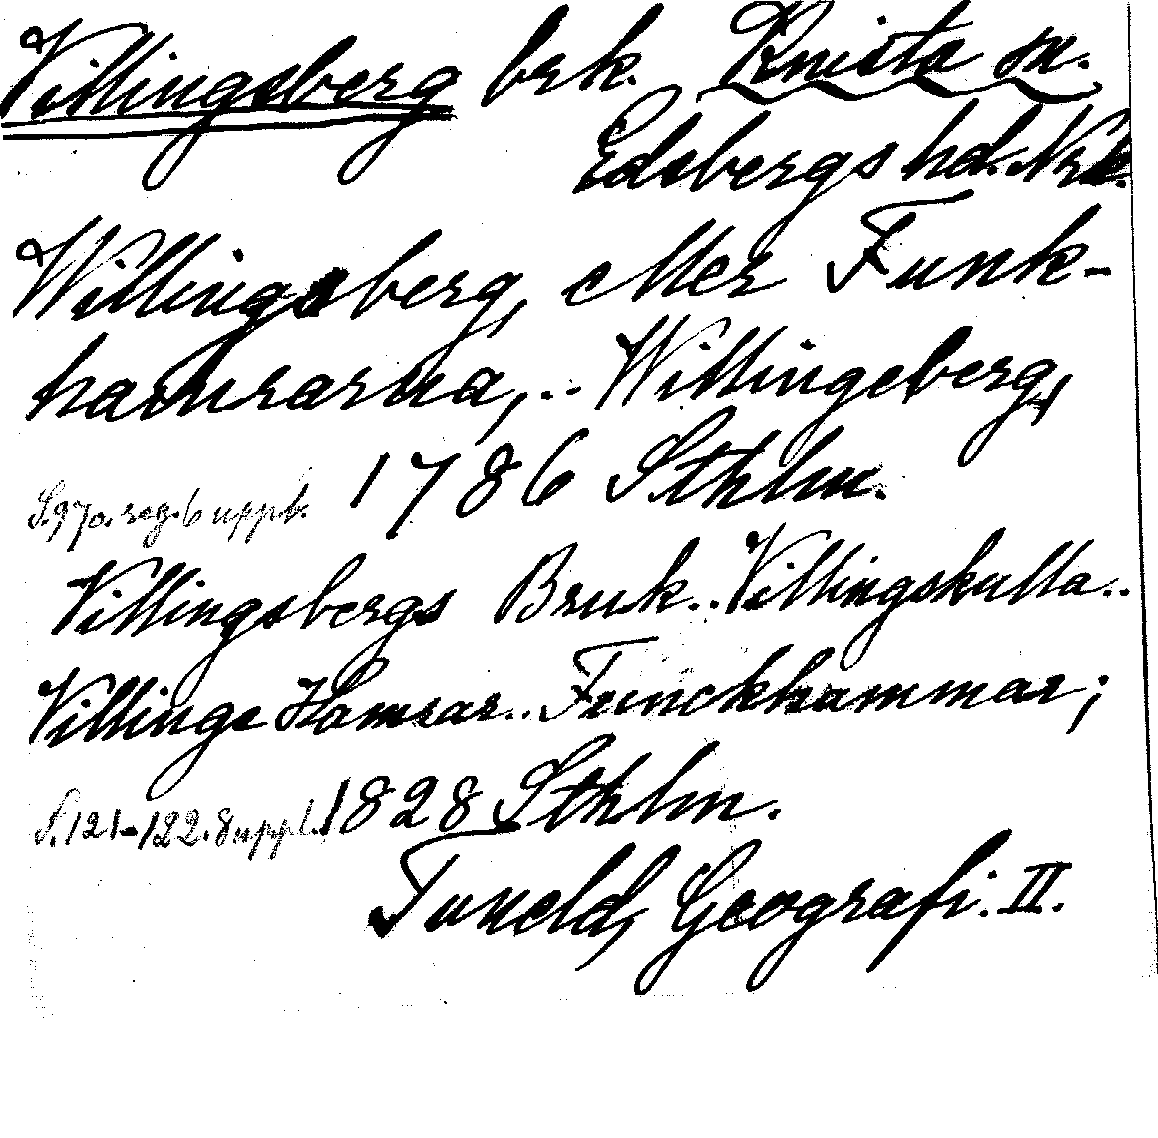 Villingsberg brk. Knista sn.
Edsbergs hd. Nrk.
Willingsberg, eller Funk-
hamrarna, .. Willingeberg,
S. 970. reg. 6 uppl. 1786 Sthlm.
Villingsbergs Bruk .. Villingskulla ..
Villinge Hamrar .. Funckhammar;
S. 121-122. 8 uppl. 1828 Sthlm.
Tuneld, Geografi. II.